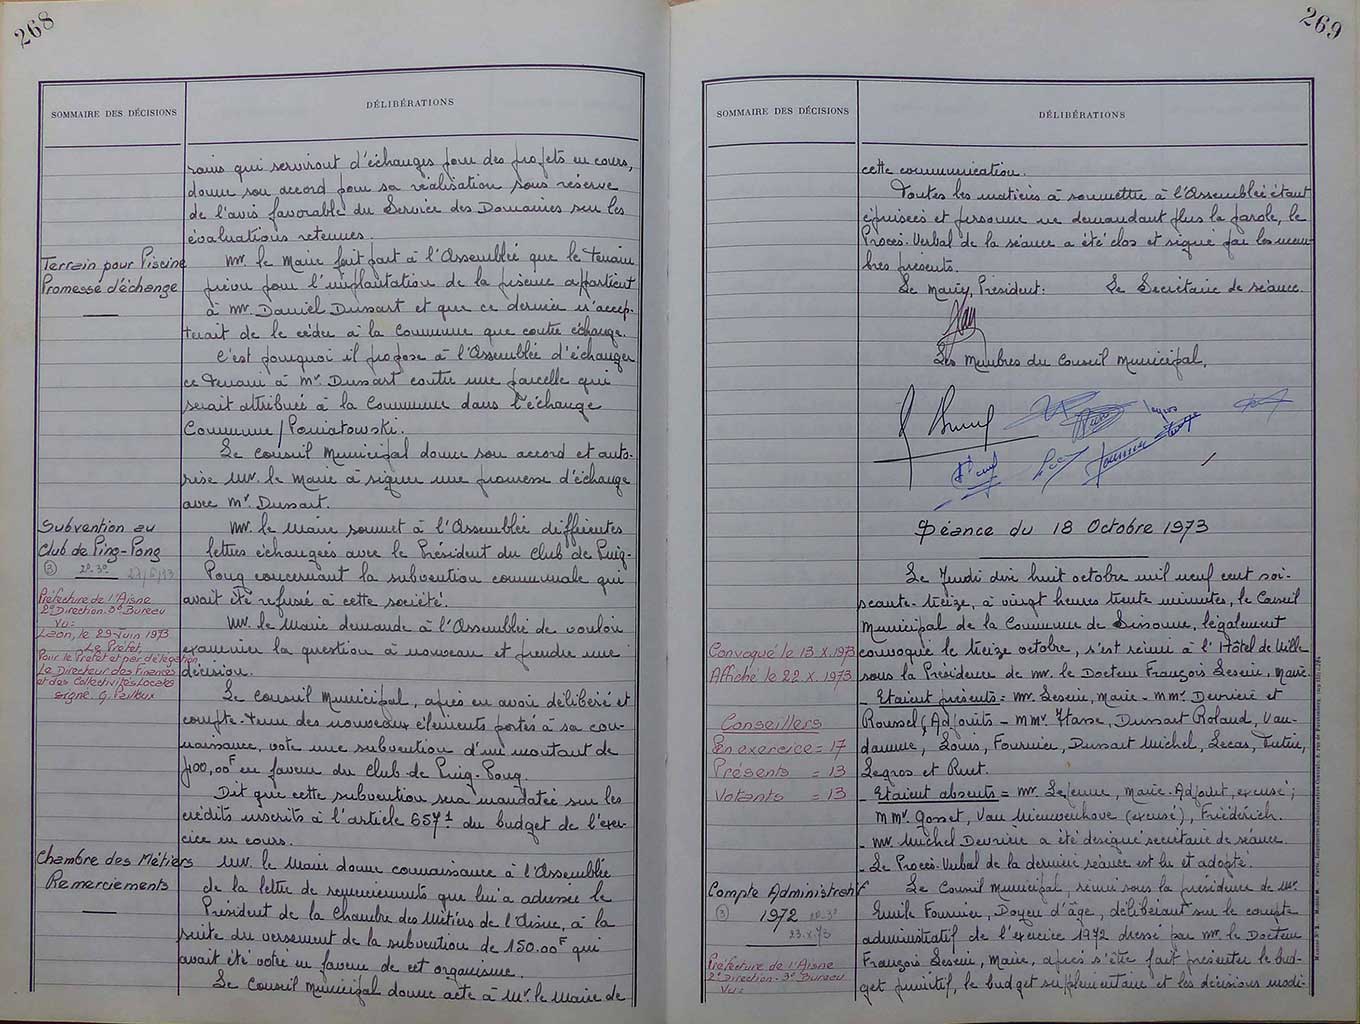 268
SOMMAIRE DES DÉCISIONS
DÉLIBÉRATIONS
rains qui serviront d'échanges pour des projets en cours,
donne son accord pour sa réalisation sous réserve
de l'avis favorable du Service des Domaines sur les
évaluations retenues.
Terrain pour Piscine
Promesse d'échange
Mr. le Maire fait part à l'Assemblée que le terrain
prévu pour l'implantation de la piscine appartient
à Mr. Daniel Dussart et que ce dernier n'accep-
terait de le céder à la Commune que contre échange.
C'est pourquoi il propose à l'Assemblée d'échanger
ce terrain à Mr Dussart contre une parcelle qui
serait attribuée à la Commune dans l'échange
Commune/Poniatowski.
Le Conseil Municipal donne son accord et auto-
rise Mr. le Maire à signer une promesse d'échange
avec Mr Dussart.
Subvention au
Club de Ping-Pong
② 2º-3º 27/6/73
Préfecture de l'Aisne
2º Direction-3º Bureau
Vu:
Laon, le 29 Juin 1973
Le Préfet,
Pour le Préfet et par délégation
Le Directeur des Finances
et des Collectivités Locales
signé G.
Mr. le Maire soumet à l'Assemblée différentes
lettres échangées avec le Président du Club de Ping-
Pong concernant la subvention communale qui
avait été refusée à cette société.
Mr. le Maire demande à l'Assemblée de vouloir
examiner la question à nouveau et prendre une
décision.
Le Conseil Municipal, après en avoir délibéré et
compte-tenu des nouveaux éléments portés à sa con-
naissance, vote une subvention d'un montant de
400,00F en faveur du Club de Ping-Pong.
Dit que cette subvention sera mandatée sur les
crédits inscrits à l'article 657¹ du budget de l'exer-
cice en cours.
Chambre des Métiers
Remerciements
Mr. le Maire donne connaissance à l'Assemblée
de la lettre de remerciements que lui a adressée le
Président de la Chambre des Métiers de l'Aisne, à la
suite du versement de la subvention de 150.00F qui
avait été votée en faveur de cet organisme.
Le Conseil Municipal donne acte à Mr. le Maire de
269
SOMMAIRE DES DÉCISIONS
DÉLIBÉRATIONS
cette communication.
Toutes les matières à soumettre à l'Assemblée étant
épuisées et personne ne demandant plus la parole, le
Procès-Verbal de la séance a été clos et signé par les mem-
bres présents.
Le Maire, Président: Le Secrétaire de séance.
Les Membres du Conseil Municipal,
Séance du 18 Octobre 1973
Le Jeudi dix huit octobre mil neuf cent soi-
xante-treize, à vingt heures trente minutes, le Conseil
Municipal de la Commune de Sissonne, légalement
Convoqué le 13.X.1973
Affiché le 22.X.1973
convoqué le treize octobre, s'est réuni à l'Hôtel de Ville
sous la Présidence de Mr. le Docteur François Leseur, Maire.
Conseillers
En exercice = 17
Présents = 13
Votants = 13
- Etaient présents = Mr. Leseur, Maire - MMr. Devrière et
Roussel, Adjoints - MMr. Hasse, Dussart Roland, Van-
damme, Louis, Fournier, Dussart Michel, Lecas, Tutin,
Legros et Ruet.
- Etaient absents = Mr. Lejeune, Maire-Adjoint, excusé;
MMr. Gosset, Van Nieuwenhove (excusé), Friédérich.
- Mr Michel Devrière a été désigné secrétaire de séance.
- Le Procès-Verbal de la dernière séance est lu et adopté.
Compte Administratif
1972
③ 2º-3º
23.X.73
Préfecture de l'Aisne
2º Direction-3º Bureau
Vu:
Le Conseil Municipal, réuni sous la présidence de Mr.
Emile Fournier, Doyen d'âge, délibérant sur le compte
administratif de l'exercice 1972 dressé par Mr. le Docteur
François Leseur, Maire, après s'être fait présenter le bud-
get primitif, le budget supplémentaire et les décisions modi-